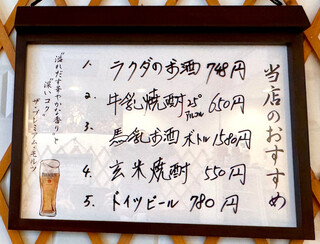 当店のおすすめ
1. ラクダのお酒 748円
2. 牛乳焼酎 25° 650円
3. 馬乳お酒 ボトル 1580円
4. 玄米焼酎 550円
5. ドイツビール 780円
"溢れだす華やかな香りと
"深いコク"
ザ・プレミアム・モルツ